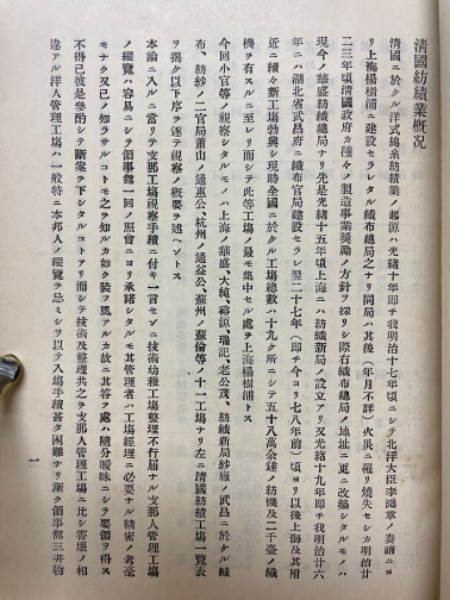 清國紡績業槪況
清國ニ於クル洋式綿糸紡績業ノ起源ハ光緒十年卽チ我明治十七年頃ニシテ北洋大臣李鴻章ノ奏請ニヨ
リ上海楊樹浦ニ建設セラレタル織布總局之ナリ同局ハ其後(年月不詳)火災ニ罹リ燒失セシカ明治廿
二三年頃淸國政府カ種々ノ製造事業獎勵ノ方針ヲ採リシ際右織布總局ノ地址ニ更ニ改築シタルモノハ
現今ノ華盛紡織總局ナリ先是光緒十五年頃上海ニハ紡織新局ノ設立アリ又光緒十九年卽チ我明治廿六
年ニハ湖北省武昌府ニ織布官局建設セラレ翌二十七年(卽チ今ヨリ七八年前)頃ヨリ以後上海及其附
近ニ續々新工場勃興シ現時全國ニ於クル工場總數ハ十九ケ所ニシテ五十八萬余錘ノ紡機及二千臺ノ織
機ヲ有スルニ至レリ而シテ此等工場ノ最モ集中セル處ヲ上海楊樹浦トス
今回小官等ノ視察シタルモノハ上海ノ華盛、大純、裕源、瑞記、老公茂、紡織新局紗廠ノ武昌ニ於クル織
布、紡紗ノ二官局蕭山ノ通惠公、杭州ノ通益公、蘇州ノ蘇倫等ノ十一工場ナリ左ニ淸國紡績工場一覽表
ヲ揭ク以下序ヲ逐テ視察ノ槪要ヲ述ヘントス
本論ニ入ルニ當リテ支那工場視察手續ニ付キ一言センニ技術幼稚工場整理不行屆ナル支那人管理工場
ノ縱覽ハ容易ニシテ領事館一回ノ照會ニヨリ承諾シタルモ其管理者ハ工場經理ニ必要ナル精密ノ考案
モナク又已ノ知ラサルコトモ之ヲ知ルカ如ク裝フ風アルカ故ニ其答フ處ハ隨分曖昧ニシテ要領ヲ得ス
不得已彼是參酌シテ斷案ヲ下シタルコトアリ而シテ技術及整理共之ヲ支那人管理工場ニ比シ霄壤ノ相
違アル洋人管理工場ハ一般特ニ本邦人ノ縱覽ヲ忌ミシヲ以テ入場手續甚タ困難ナリ漸ク領事館三井物
一